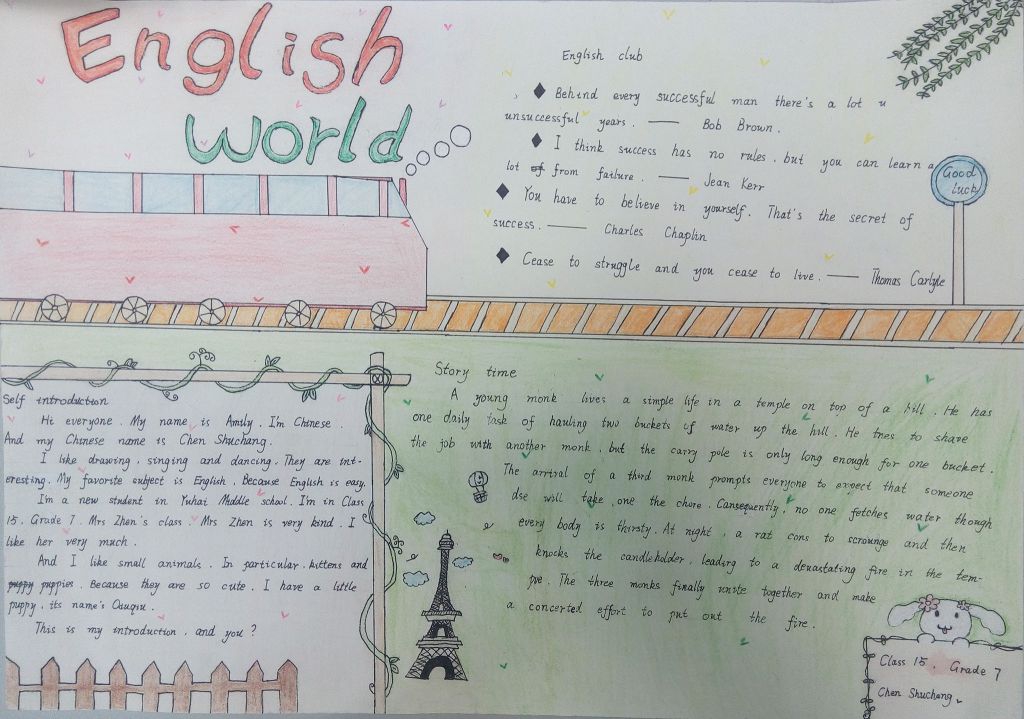 English
world
English club
◆ Behind every successful man there's a lot u
unsuccessful years. —— Bob Brown.
◆ I think success has no rules, but you can learn a
lot from failure. —— Jean Kerr
◆ You have to believe in yourself. That's the secret of
success. —— Charles Chaplin
◆ Cease to struggle and you cease to live. —— Thomas Carlyle
Good
luck
Self introduction
Hi everyone. My name is Amily. I'm Chinese.
And my Chinese name is Chen Shuchang.
I like drawing, singing and dancing. They are int-
eresting. My favorite subject is English, Because English is easy.
I'm a new student in Yuhai Middle school. I'm in Class
15, Grade 7. Mrs Zhen's class. Mrs Zhen is very kind. I
like her very much.
And I like small animals. In particular, kittens and
puppy puppies. Because they are so cute. I have a little
puppy, its name's
This is my introduction, and you?
Story time
A young monk lives a simple life in a temple on top of a hill. He has
one daily task of hauling two buckets of water up the hill. He tries to share
the job with another monk, but the carry pole is only long enough for one bucket.
The arrival of a third monk prompts everyone to expect that someone
else will take one the chore. Cansequently, no one fetches water though
every body is thirsty. At night, a rat cons to scrounge and then
knocks the candleholder, leading to a devastating fire in the tem-
ple. The three monks finally unite together and make
a concerted effort to put out the fire.
Class 15, Grade 7
Chen Shuchang